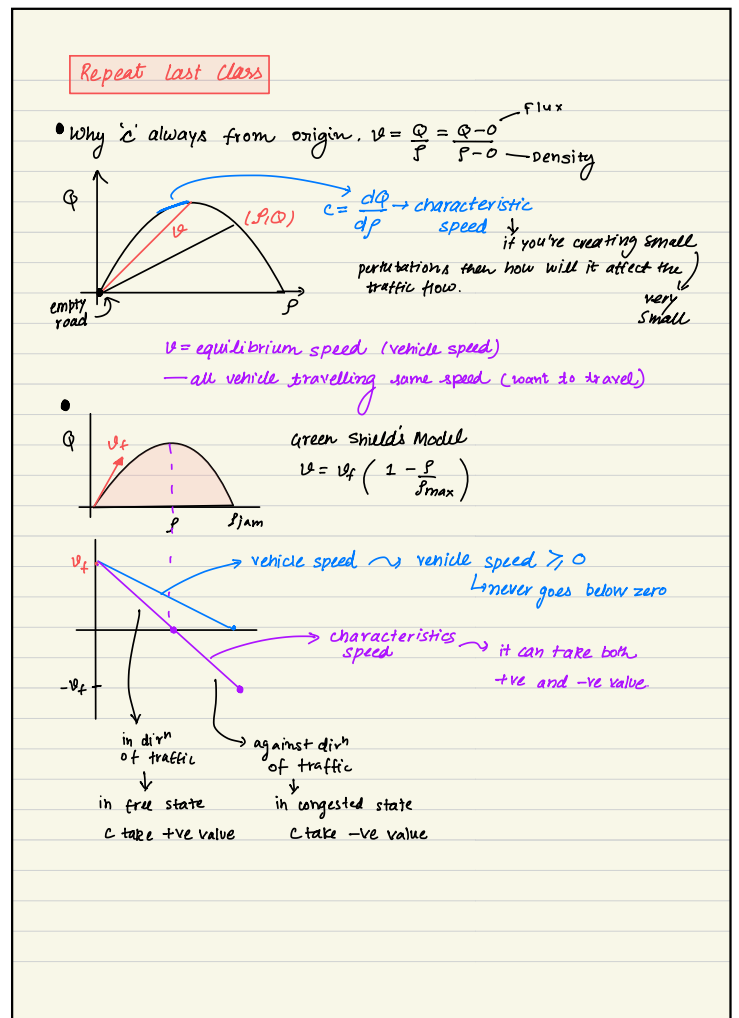 Repeat Last Class
• Why 'c' always from origin. v = Q/ρ = (Q-0)/(ρ-0)
Flux
Density
Q
v
(ρ,Q)
ρ
empty
road
c = dQ/dρ → characteristic
speed
if you're creating small
pertutations then how will it affect the
traffic flow.
very
small
v = equilibrium speed (vehicle speed)
— all vehicle travelling same speed (want to travel)
•
Q
vf
ρ
ρjam
Green Shield's Model
v = vf (1 - ρ/ρmax)
vf
vehicle speed
vehicle speed ⩾ 0
never goes below zero
characteristics
speed
it can take both
+ve and -ve value.
-vf
in dirⁿ
of traffic
in free state
c take +ve value
against dirⁿ
of traffic
in congested state
c take -ve value